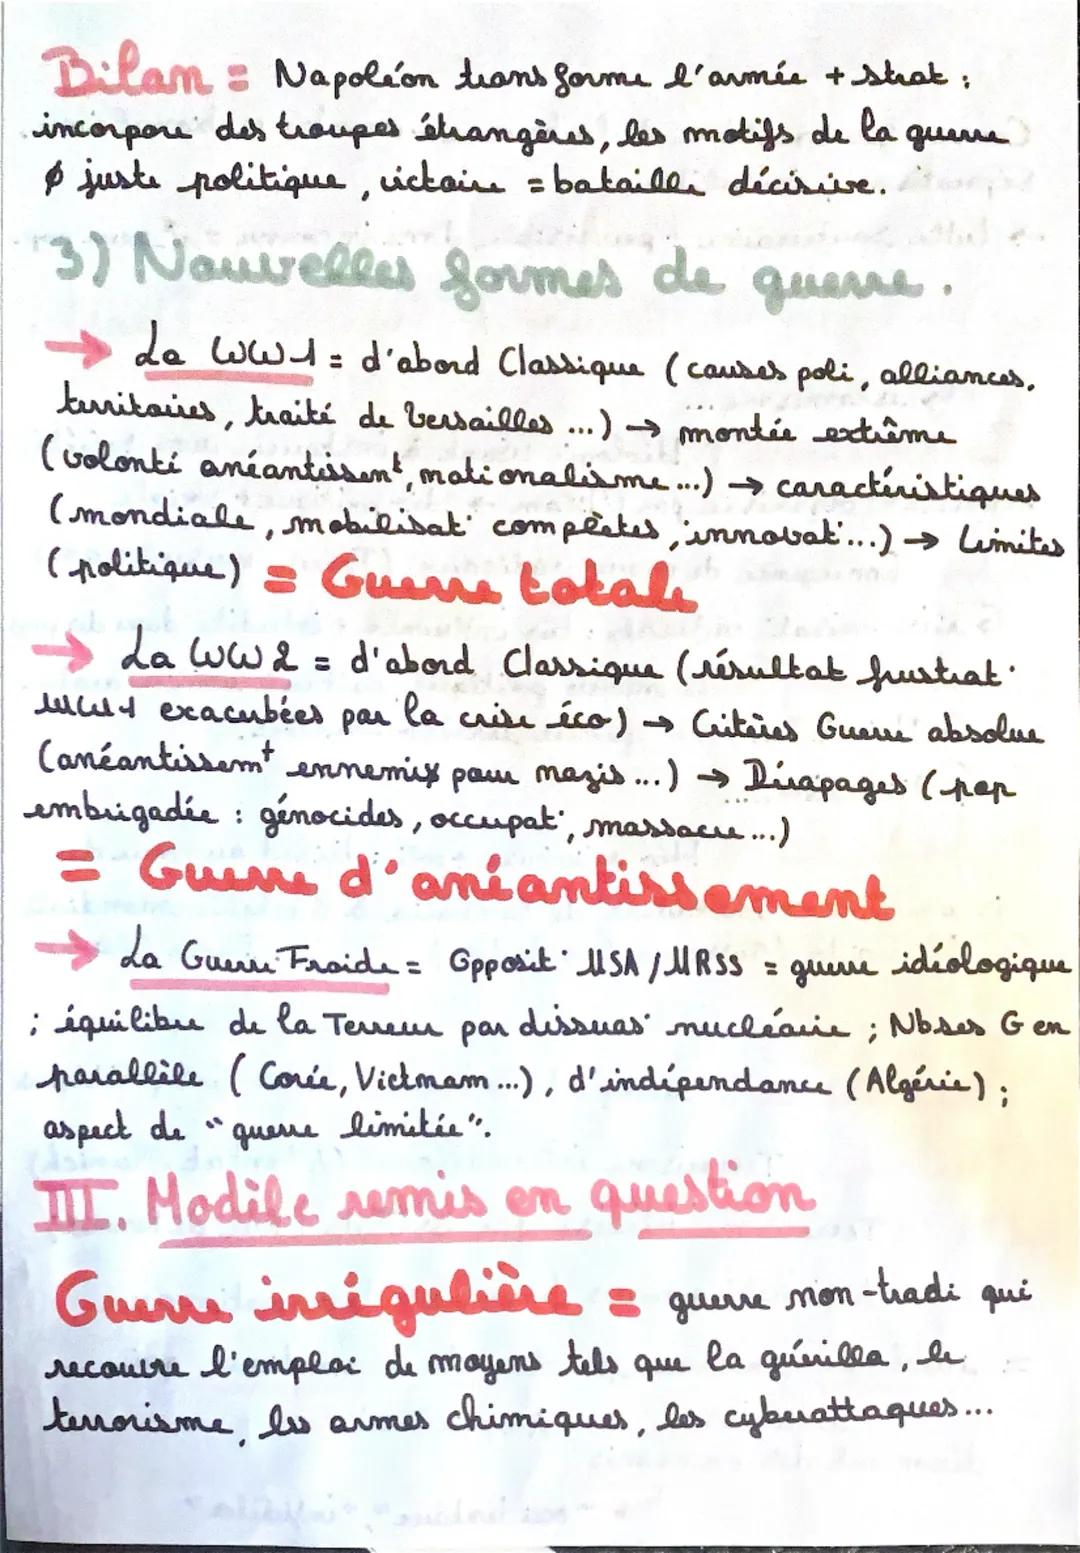 Bilan = Napoléon transforme l'armée + strat :
incorpore des troupes étrangères, les motifs de la guerre
Ø juste politique, victoire = bataille décisive.
3) Nouvelles formes de guerre.
→ La WW1 = d'abord Classique (causes poli, alliances,
territoires, traité de Versailles ...) → montée extrême
(volonté anéantissemt, nationalisme ...) → caractéristiques
(mondiale, mobilisat° completes, innovat°...) → Limites
(politique) = Guerre totale
→ La WW2 = d'abord Classique (résultat frustrat°
WW1 exacerbées par la crise éco) → Critères Guerre absolue
(anéantissemt ennemix pour nazis ...) → Dérapages (pop
embrigadée : génocides, occupat°, massacre ...)
= Guerre d'anéantissement
→ La Guerre Froide = Opposit° USA / URSS = guerre idéologique
; équilibre de la Terreur par dissuas° nucléaire ; Nbses G en
parallèle (Corée, Vietnam ...), d'indépendance (Algérie) ;
aspect de "guerre limitée".
III. Modèle remis en question
Guerre irrégulière = guerre non-tradi qui
recouvre l'emploi de moyens tels que la guérilla, le
terrorisme, les armes chimiques, les cyberattaques...